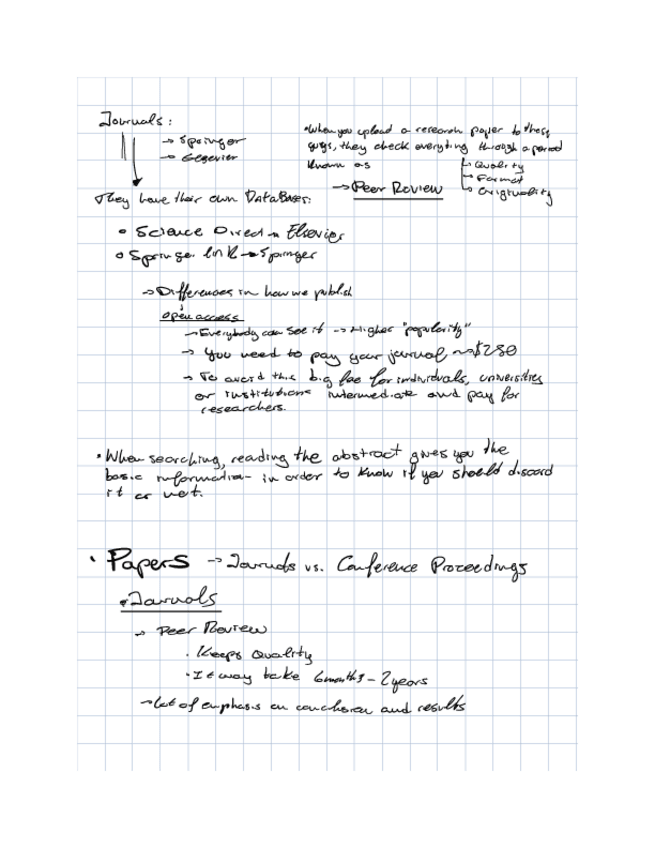 Journals:
→ Springer
→ Elsevier
They have their own DataBases:
• When you upload a research paper to these
guys, they check everything through a period
known as
→ Peer Review
→ Quality
→ Format
→ Originality
• Science Direct → Elsevier
• Springer link → Springer
→ Differences in how we publish
open access
→ Everybody can see it → Higher "popularity"
→ You need to pay your journal,
→ To avoid this big fee for individuals, universities
or institutions intermediate and pay for
researchers.
• When searching, reading the abstract gives you the
basic information in order to know if you should discard
it or not.
• Papers → Journals vs. Conference Proceedings
• Journals
→ Peer Review
• Keeps Quality
• It may take 6months - 2years
→ Lot of emphasis on conclusion and results